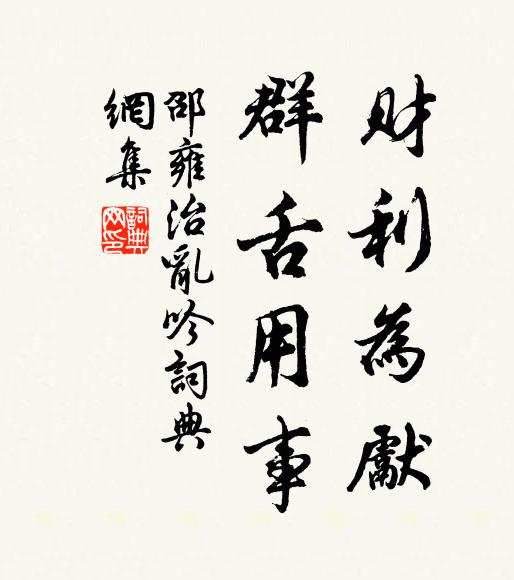 財利為獻
群舌用事
邵雍治亂吟詞典
網集
詞典網印